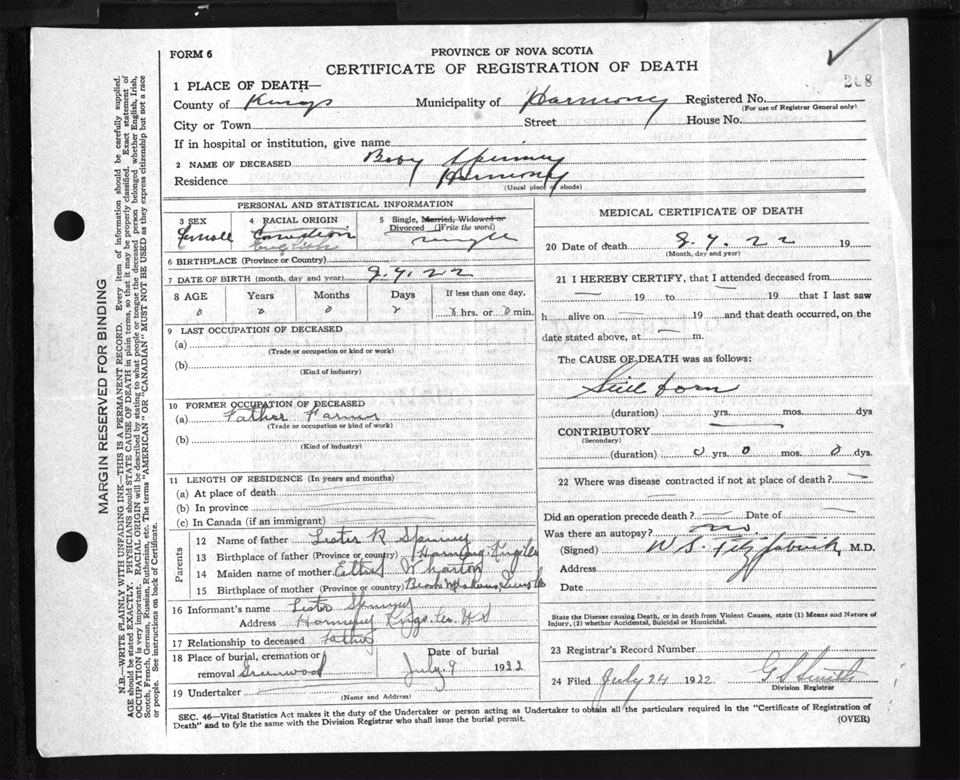 FORM 6
PROVINCE OF NOVA SCOTIA
CERTIFICATE OF REGISTRATION OF DEATH
208
1 PLACE OF DEATH—
County of Kings Municipality of Harmony Registered No.
(For use of Registrar General only)
City or Town Street House No.
If in hospital or institution, give name
2 NAME OF DECEASED Baby Spinney
Residence Harmony
(Usual place of abode)
PERSONAL AND STATISTICAL INFORMATION
3 SEX 4 RACIAL ORIGIN 5 Single, Married, Widowed or
Divorced (Write the word)
Female Canadian single
English
6 BIRTHPLACE (Province or Country)
7 DATE OF BIRTH (month, day and year) 22
8 AGE Years Months Days If less than one day,
0 0 0 0 0 hrs. or 0 min.
9 LAST OCCUPATION OF DECEASED
(a)
(Trade or occupation or kind or work)
(b)
(Kind of industry)
10 FORMER OCCUPATION OF DECEASED
(a) Father Farmer
(Trade or occupation or kind of work)
(b)
(Kind of industry)
11 LENGTH OF RESIDENCE (In years and months)
(a) At place of death
(b) In province
(c) In Canada (if an immigrant)
Parents
12 Name of father Lester R Spinney
13 Birthplace of father (Province or country) Harmony Kings Co
14 Maiden name of mother Wharton
15 Birthplace of mother (Province or country)
16 Informant's name Lester Spinney
Address Harmony Kings Co. NS
17 Relationship to deceased father
18 Place of burial, cremation or Date of burial
removal Greenwood July 9 1922
19 Undertaker
(Name and Address)
MEDICAL CERTIFICATE OF DEATH
20 Date of death 22 19
(Month, day and year)
21 I HEREBY CERTIFY, that I attended deceased from
19 to 19 that I last saw
h alive on 19 and that death occurred, on the
date stated above, at m.
The CAUSE OF DEATH was as follows:
Still born
(duration) yrs. mos. dys
CONTRIBUTORY
(Secondary)
(duration) 0 yrs. 0 mos. 0 dys.
22 Where was disease contracted if not at place of death?
Did an operation precede death? Date of
Was there an autopsy? no
(Signed) W. S. Fitzpatrick M.D.
Address
Date
State the Disease causing Death, or in death from Violent Causes, state (1) Means and Nature of
Injury, (2) whether Accidental, Suicidal or Homicidal.
23 Registrar's Record Number
24 Filed July 24 1922 G S Smith
Division Registrar
SEC. 46—Vital Statistics Act makes it the duty of the Undertaker or person acting as Undertaker to obtain all the particulars required in the "Certificate of Registration of
Death" and to fyle the same with the Division Registrar who shall issue the burial permit. (OVER)
MARGIN RESERVED FOR BINDING
N.B.—WRITE PLAINLY WITH UNFADING INK—THIS IS A PERMANENT RECORD. Every item of information should be carefully supplied.
AGE should be stated EXACTLY. PHYSICIANS should STATE CAUSE OF DEATH in plain terms, so that it may be properly classified. Exact statement of
OCCUPATION is very important. RACIAL ORIGIN will be described by stating to what people or tongue the deceased person belonged whether English, Irish,
Scotch, French, German, Russian, Ruthenian, etc. The terms "AMERICAN" OR "CANADIAN" MUST NOT BE USED as they express citizenship but not a race
or people. See instructions on back of Certificate.